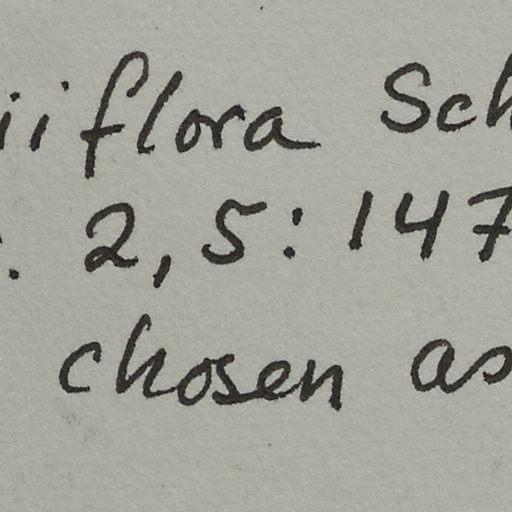 iiflora Sch
. 2, 5: 147
chosen as